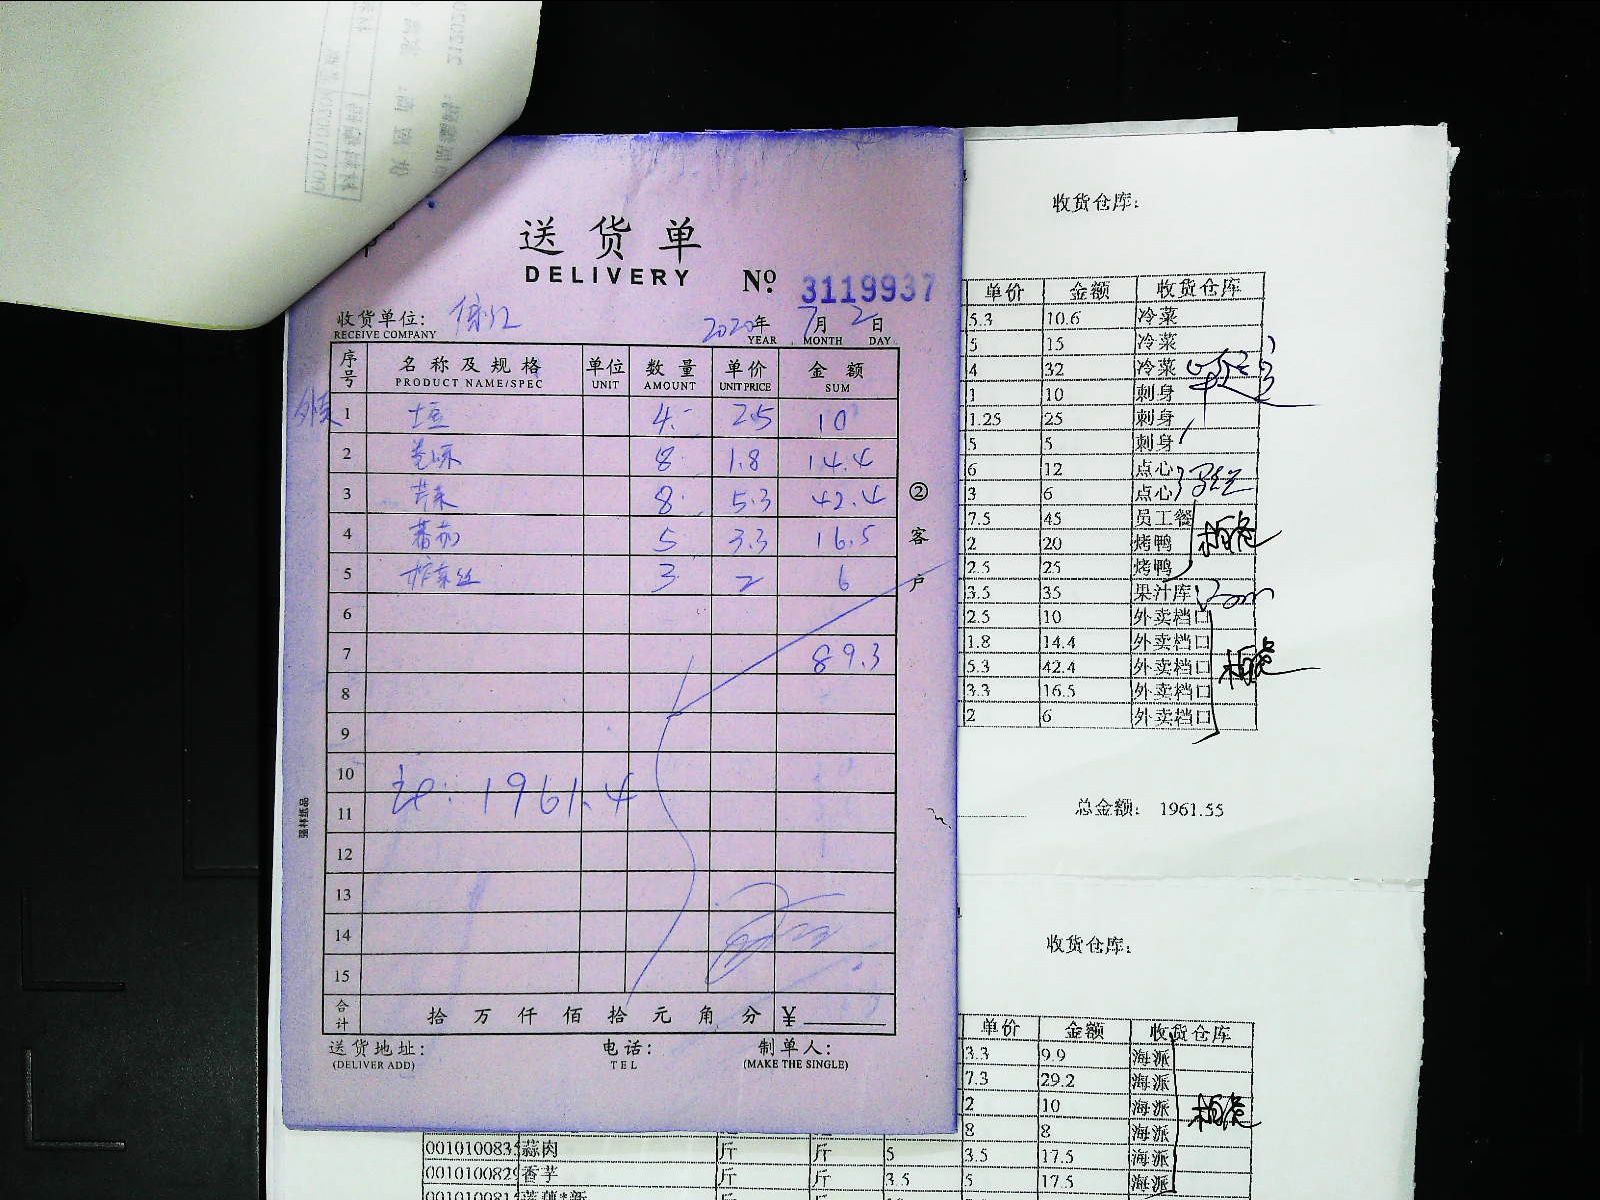 送货单
DELIVERY
No. 3119937
收货单位:
RECEIVE COMPANY
2020年 7月 2日
YEAR MONTH DAY
序号 名称及规格 单位 数量 单价 金额
PRODUCT NAME/SPEC UNIT AMOUNT UNIT PRICE SUM
外卖
1 土豆 4 2.5 10
2 8 1.8 14.4
3 芹菜 8 5.3 42.4
4 蕃茄 5 3.3 16.5
5 榨菜丝 3 2 6
6
7 89.3
8
9
10
1961.4
11
12
13
14
15
合计 拾万仟佰拾元角分 ¥
送货地址: 电话: 制单人:
(DELIVER ADD) TEL (MAKE THE SINGLE)
②客户
强林纸品
收货仓库:
单价 金额 收货仓库
5.3 10.6 冷菜
5 15 冷菜
4 32 冷菜
1 10 刺身
1.25 25 刺身
5 5 刺身
6 12 点心
3 6 点心
7.5 45 员工餐
2 20 烤鸭
2.5 25 烤鸭
3.5 35 果汁库
2.5 10 外卖档口
1.8 14.4 外卖档口
5.3 42.4 外卖档口
3.3 16.5 外卖档口
2 6 外卖档口
总金额: 1961.55
收货仓库:
单价 金额 收货仓库
3.3 9.9 海派
7.3 29.2 海派
2 10 海派
8 8 海派
001010083 蒜肉 斤 斤 5 3.5 17.5 海派
001010082 香芋 斤 斤 3.5 5 17.5 海派